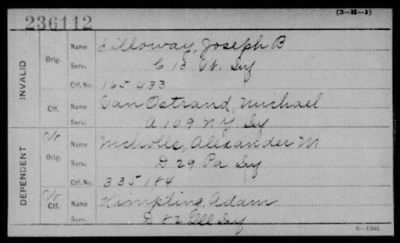 (3-H-3)
236112
INVALID
Orig.
Name Dilloway, Joseph B
Serv. C 13 Vt. Inf
Ctf. No. 165 433
Ctf.
Name Van Ostrand, Michael
Serv. A 109 N Y Inf
DEPENDENT
C/o
Orig.
Name Nicholls, Alexander M
Serv. D 29 Pa Inf
Ctf. No. 335 184
C/o
Ctf.
Name Kimpling, Adam
Serv. D 82 Ill Inf
6-1380